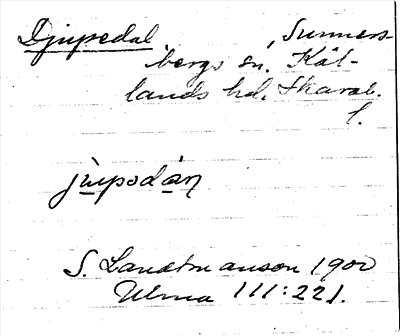 Djupedal Sunners-
bergs sn. Kål-
lands hd. Skarab.
l.
jùpodàn
S. Landtmanson 1900
Ulma 111:221.